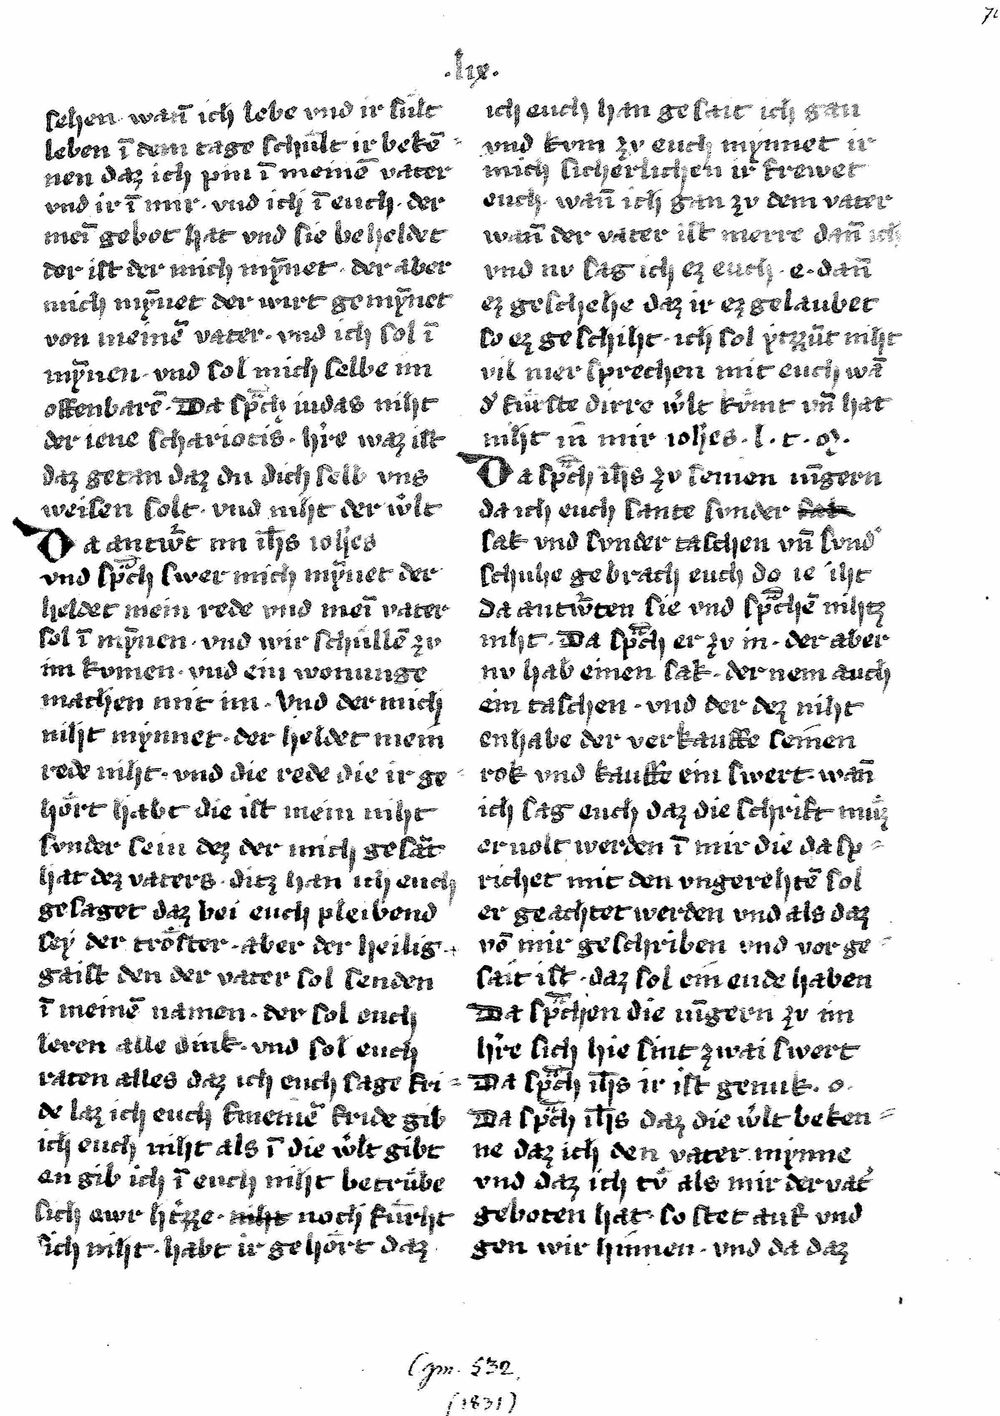 70
·lix·
sehen· wan̄ ich lebe vnd ir sult
leben ī dem tage schu̇lt ir bekē=
nen daz ich pin ī meinē vater
vnd ir ī mir· vnd ich ī euch· der
mei̅ gebot hat vnd sie beheldet
der ist der mich mẏnet· der aber
mich mẏnet der wirt gemẏnet
von meinē vater· vnd ich sol ī
mẏnen· vnd sol mich selbe im
offenbarē· Da sp̄ch iudas niht
der iene schariotis· hr̄e waz ist
daz getan daz du dich selb vns
weisen solt· vnd niht der w̓lt
Da antw̓t im ih̄s ioh̄es
vnd sp̄ch swer mich mẏnet der
heldet mein rede vnd mei̅ vater
sol ī mẏnen· vnd wir schullē zv
im kvmen· vnd ein wonunge
machen mit im· Vnd der mich
niht mẏnnet· der heldet mein
rede niht· vnd die rede die ir ge=
hört habt die ist mein niht
svnder sein dez der mich gesāt
hat dez vaters· ditz han ich euch
gesaget daz bei euch pleibend
seẏ der tröster· aber der heilig
gaist den der vater sol senden
ī meinē namen· der sol euch
leren alle dink· vnd sol euch
raten alles daz ich euch sage fri=
de laz ich euch meinē fride gib
ich euch niht als ī die w̓lt gibt
en gib ich ī euch niht betrübe
sich ewr h̓tze· niht noch fürht
sich niht· habt ir gehört daz
ich euch han gesait ich gan
vnd kvm zv euch mẏnnet ir
mich sicherlichen ir frewet
euch· wan̄ ich gan zv dem vater
wan̄ der vater ist merre dan̄ ich
vnd nv sag ich ez euch· e· dan̄
ez geschehe daz ir ez gelaubet
so ez geschiht· ich sol ytzzūt niht
vil mer sprechen mit euch wā
d̓ fürste dirre w̓lt kv̄mt vn̄ hat
niht in̄ mir ioh̄es· l· t· oz·
Da sp̄ch ih̄s zv seinen iūgern
da ich euch sante svnder sak
sak vnd svnder taschen vn̄ svnd̓
schuhe gebrach euch do ie iht
da antw̓ten sie vnd sp̄chē nihtz
niht· Da sp̄ch er zv in· der aber
nv hab einen sak· der nem auch
ein taschen· vnd der dez niht
enhabe der verkauffe seinen
rok vnd kauffe ein swert· wan̄
ich sag euch daz die schrift muz
ervolt werden ī mir die da sp=
richet mit den vngerehtē sol
er geachtet werden vnd als daz
vō mir geschriben vnd vor ge=
sait ist· daz sol ein ende haben
Da sp̄chen die iūgern zv im
hr̄e sich hie sint zwai swert
Da sp̄ch ih̄s ir ist genuk· o·
Da sp̄ch ih̄s daz die w̓lt beken=
ne daz ich den vater mẏnne
vnd daz ich tv̊ als mir der vat̓
geboten hat· so stet auf vnd
gen wir hinnen· vnd da daz
Cgm. 532.
(1831)